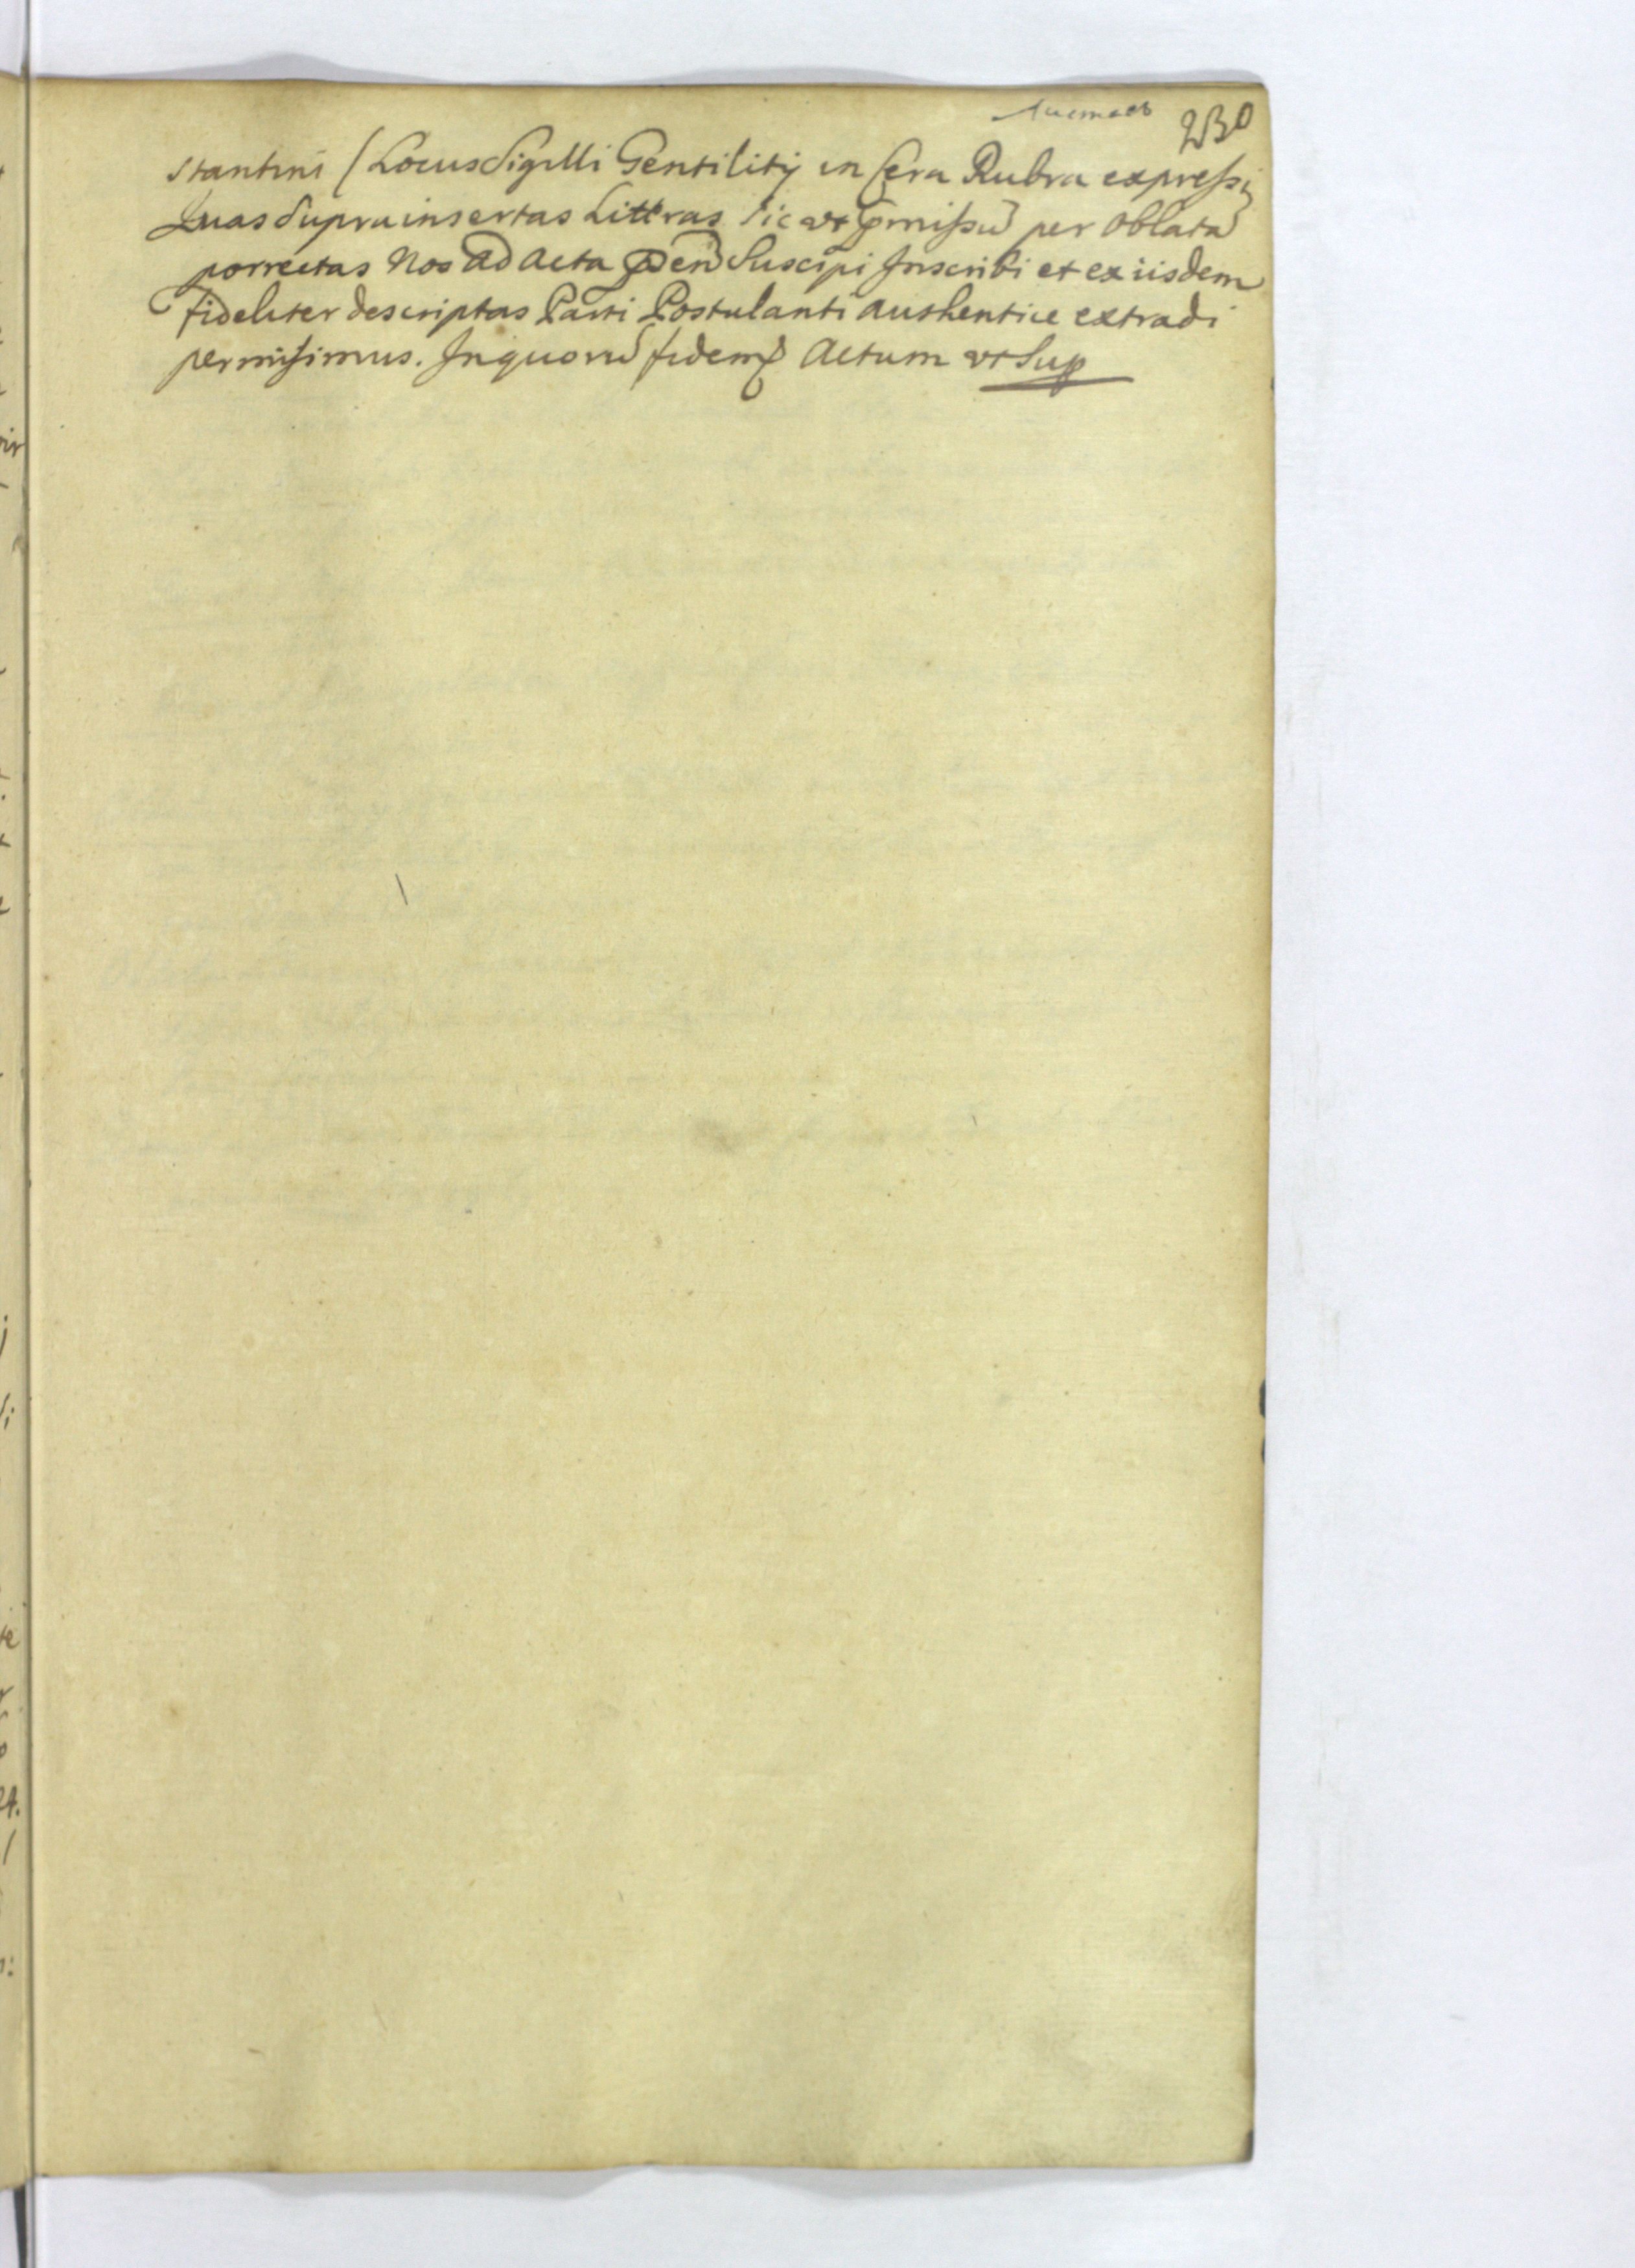 230
stantini / Locus Sigilli Gentilitij in Cera Rubra expressi
Quas supra insertas Litteras sic ut pmissũ per oblatã
porrectas Nos ad Acta pñ Suscipi Inscribi et ex iisdem
fideliter descriptas Parti Postulanti authentice extradi
permisimus. In quorũ fidem Actum ut Sup